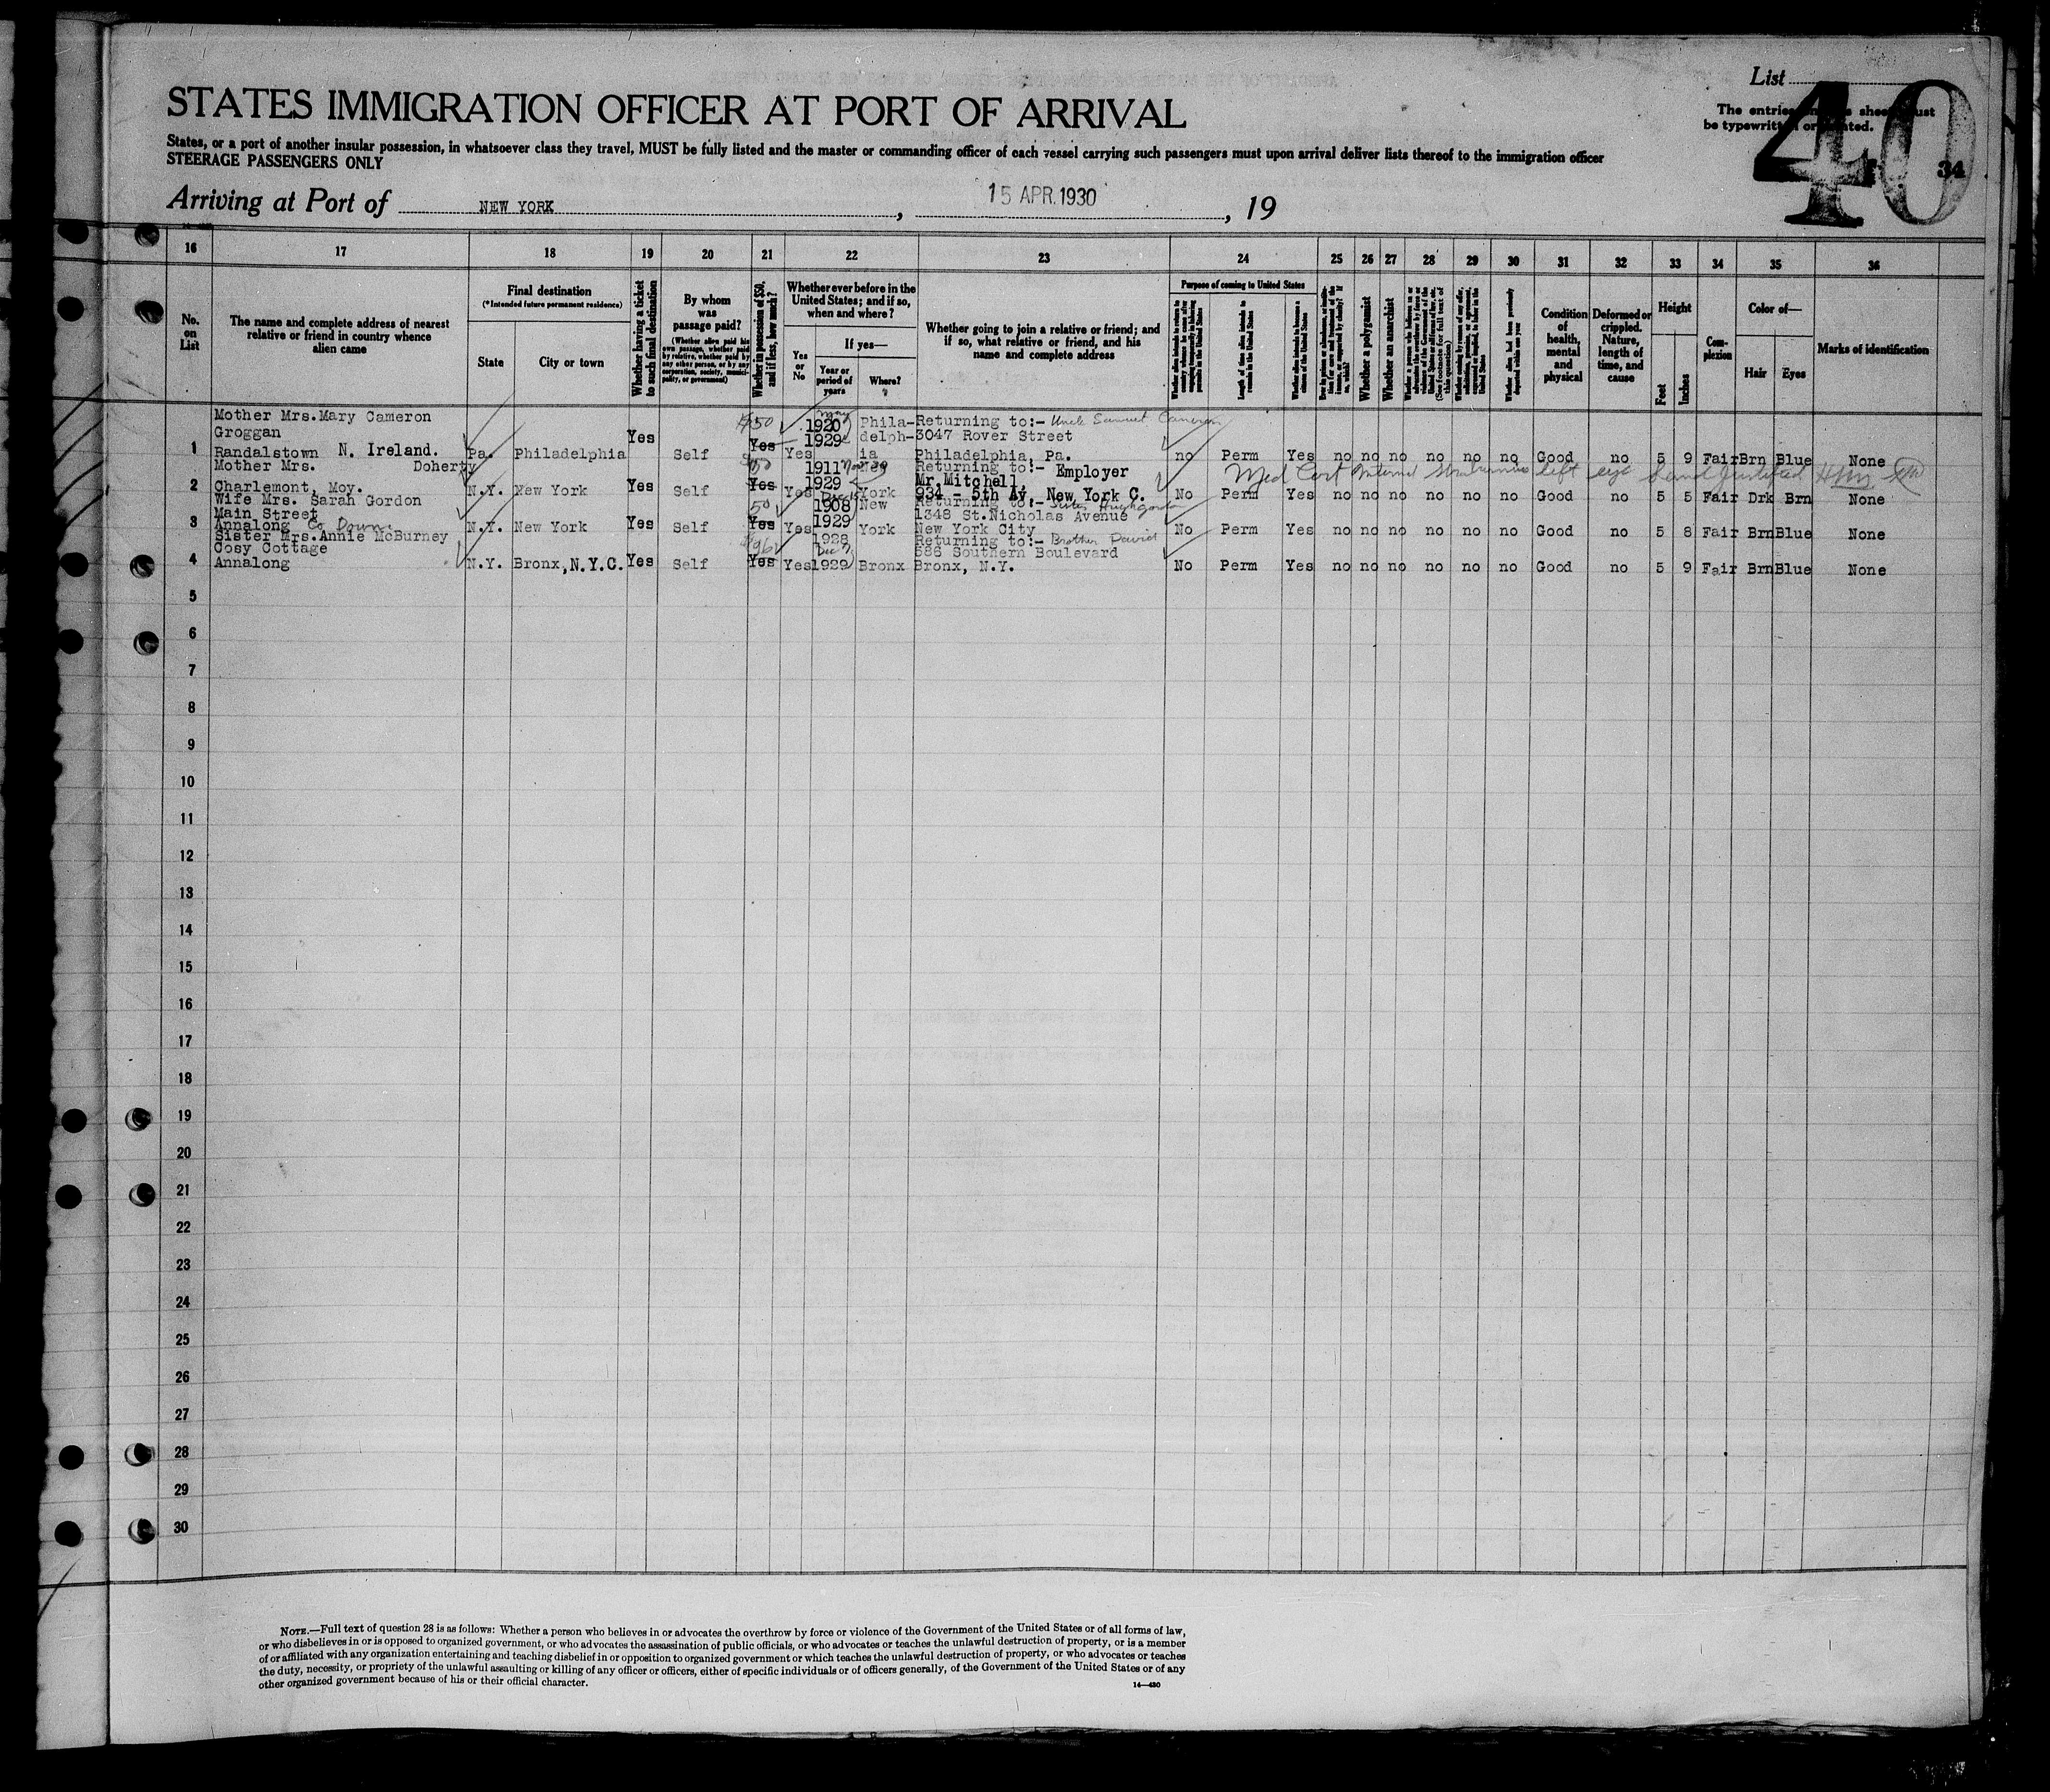 List
40
34
STATES IMMIGRATION OFFICER AT PORT OF ARRIVAL
The entries sheet must
be typewritten or printed.
States, or a port of another insular possession, in whatsoever class they travel, MUST be fully listed and the master or commanding officer of each vessel carrying such passengers must upon arrival deliver lists thereof to the immigration officer
STEERAGE PASSENGERS ONLY
Arriving at Port of NEW YORK , 15 APR. 1930 , 19
16 17 18 19 20 21 22 23 24 25 26 27 28 29 30 31 32 33 34 35 36
No. on List
The name and complete address of nearest relative or friend in country whence alien came
Final destination
(*Intended future permanent residence)
State
City or town
Whether having a ticket to such final destination
By whom was passage paid?
(Whether alien paid his own passage, whether paid by relative, whether paid by any other person, or by any corporation, society, municipality, or government)
Whether in possession of $50, and if less, how much?
Whether ever before in the United States; and if so, when and where?
Yes or No
If yes—
Year or period of years
Where?
Whether going to join a relative or friend; and if so, what relative or friend, and his name and complete address
Purpose of coming to United States
Length of time alien intends to remain in the United States
Whether alien intends to become a citizen of the United States
Whether a polygamist
Whether an anarchist
(See footnote for full text of this question)
Whether alien had been previously deported within one year
Condition of health, mental and physical
Deformed or crippled. Nature, length of time, and cause
Height
Feet
Inches
Complexion
Color of—
Hair
Eyes
Marks of identification
Mother Mrs. Mary Cameron
Groggan
1 Randalstown N. Ireland. Pa. Philadelphia Yes Self $50 Yes Yes 1920 1929 Philadelphia
Returning to:- Uncle Samuel Cameron
3047 Rover Street
Philadelphia, Pa. no Perm Yes no no no no no no Good no 5 9 Fair Brn Blue None
Mother Mrs. Doherty
2 Charlemont, Moy. N.Y. New York Yes Self $50 Yes Yes 1911 1929 New York
Returning to:- Employer
Mr. Mitchell
934 - 5th Av, New York C. No Perm Yes no no no no no no Good no 5 5 Fair Drk Brn None
Med Cert left eye
Wife Mrs. Sarah Gordon
Main Street
3 Annalong Co Down N.Y. New York Yes Self 50 Yes Yes 1908 1929 New York
Returning to:- Sister
1348 St. Nicholas Avenue
New York City No Perm Yes no no no no no no Good no 5 8 Fair Brn Blue None
Sister Mrs. Annie McBurney
Cosy Cottage
4 Annalong N.Y. Bronx, N.Y.C. Yes Self Yes Yes 1928 Dec 1929 Bronx
Returning to:- Brother David
586 Southern Boulevard
Bronx, N.Y. No Perm Yes no no no no no no Good no 5 9 Fair Brn Blue None
5
6
7
8
9
10
11
12
13
14
15
16
17
18
19
20
21
22
23
24
25
26
27
28
29
30
NOTE.—Full text of question 28 is as follows: Whether a person who believes in or advocates the overthrow by force or violence of the Government of the United States or of all forms of law,
or who disbelieves in or is opposed to organized government, or who advocates the assassination of public officials, or who advocates or teaches the unlawful destruction of property, or is a member
of or affiliated with any organization entertaining and teaching disbelief in or opposition to organized government or which teaches the unlawful destruction of property, or who advocates or teaches
the duty, necessity, or propriety of the unlawful assaulting or killing of any officer or officers, either of specific individuals or of officers generally, of the Government of the United States or of any
other organized government because of his or their official character.
14—430